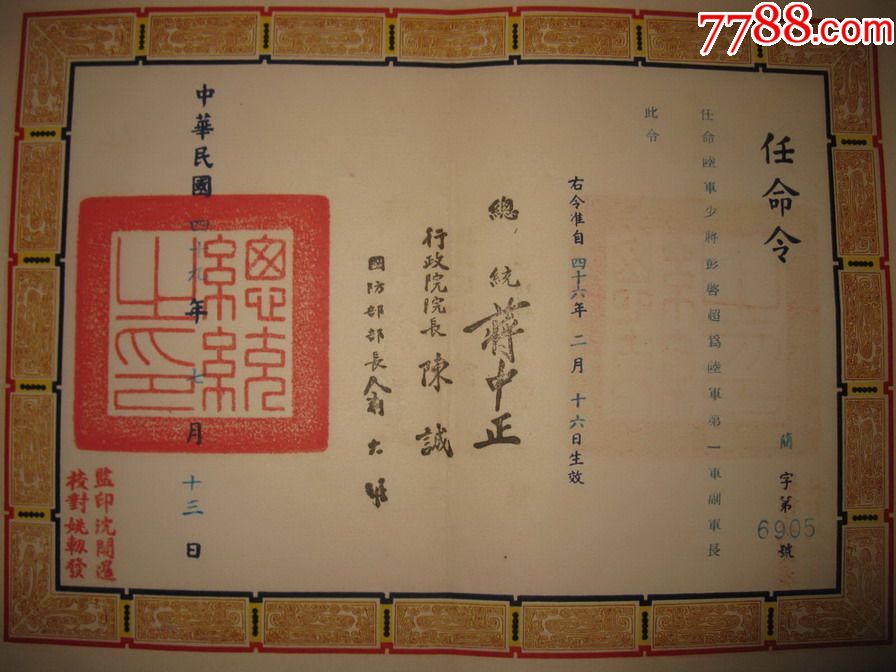 7788.com
任命令
簡字第6905號
任命陸軍少將彭啓超爲陸軍第一軍副軍長
此令
右令准自四十六年二月十六日生效
總統蔣中正
行政院院長陳誠
國防部部長俞大維
中華民國四十九年七月十三日
總統之印
監印沈開運
校對姚叔發